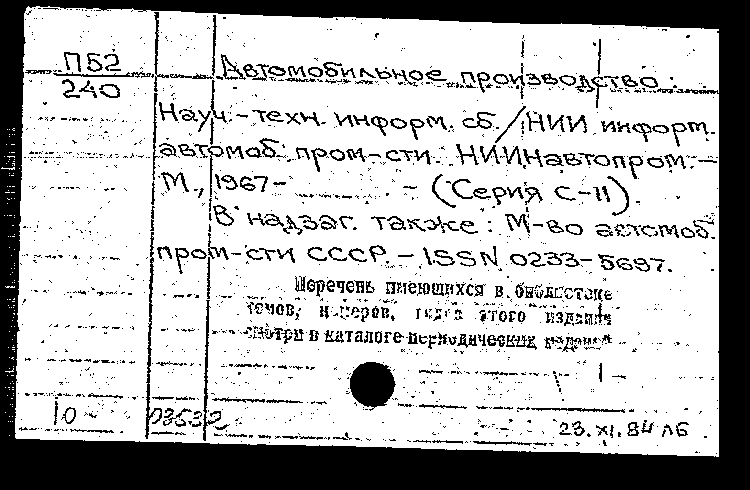 П52
240
Автомобильное производство :
Науч.-техн. информ. сб. / НИИ информ.
автомоб. пром-сти. НИИНавтопром. –
М., 1967- – (Серия С-II).
В надзаг. также: М-во автомоб.
пром-сти СССР. – ISSN 0233-5697.
Перечень имеющихся в библиотеке
томов, номеров, годов этого издания
смотри в каталоге периодических изданий
10 - 03532
23.XI.84 ЛБ